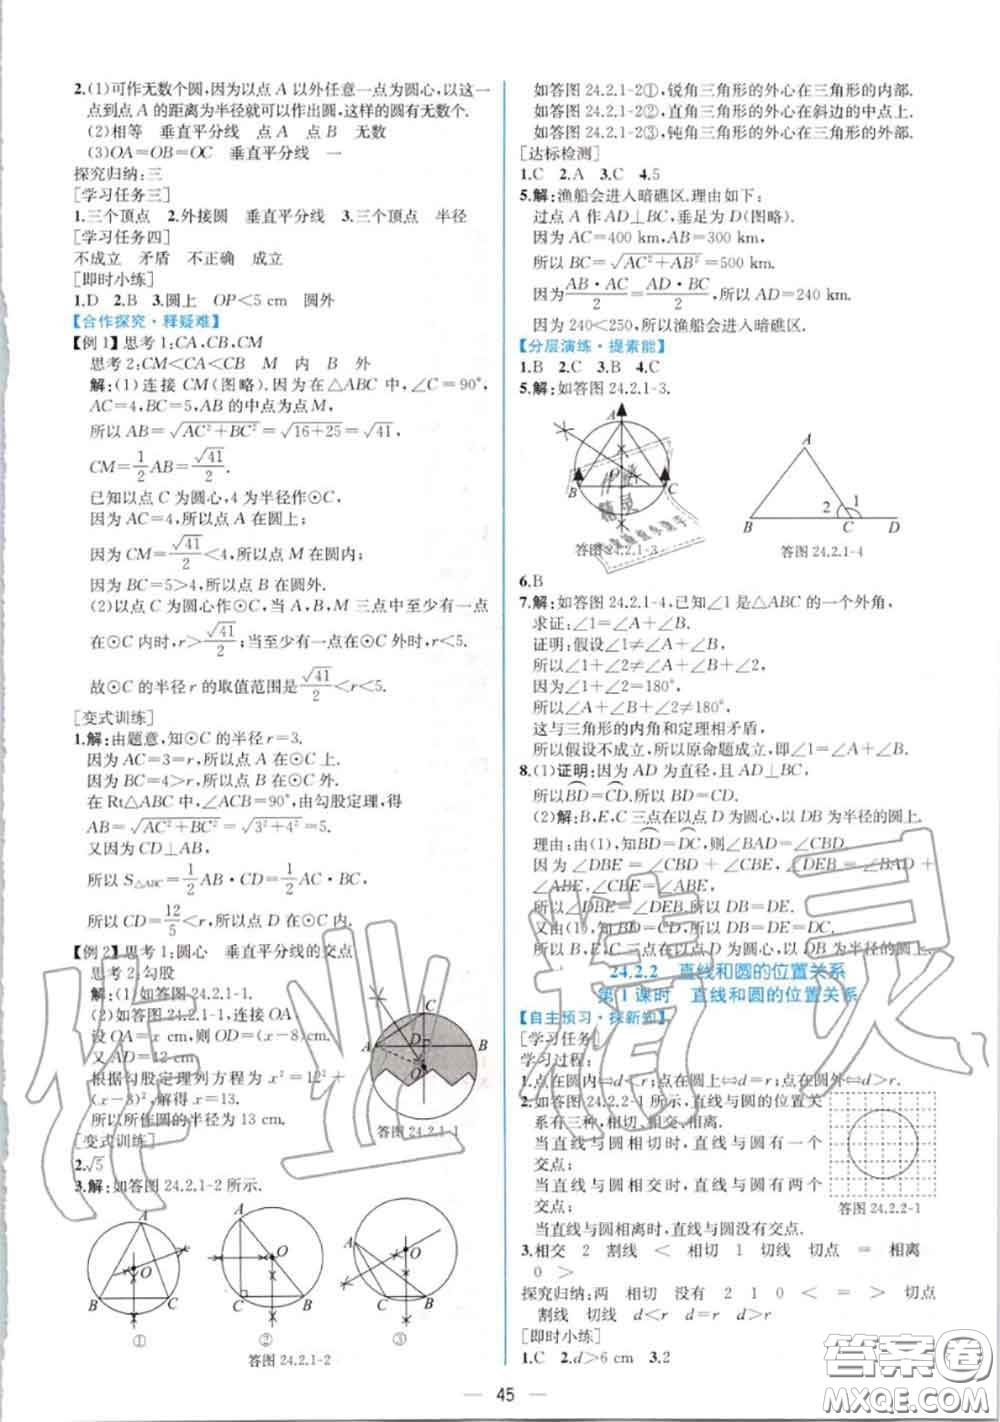 2.(1)可作无数个圆,因为以点 A 以外任意一点为圆心,以这一
点到点 A 的距离为半径就可以作出圆,这样的圆有无数个.
(2)相等 垂直平分线 点 A 点 B 无数
(3)OA=OB=OC 垂直平分线 一
探究归纳:三
[学习任务三]
1.三个顶点 2.外接圆 垂直平分线 3.三个顶点 半径
[学习任务四]
不成立 矛盾 不正确 成立
[即时小练]
1.D 2.B 3.圆上 OP<5 cm 圆外
【合作探究·释疑难】
【例 1】思考 1:CA,CB,CM
思考 2:CM<CA<CB M 内 B 外
解:(1)连接 CM(图略).因为在△ABC 中,∠C=90°,
AC=4,BC=5,AB 的中点为点 M,
所以 AB=√(AC²+BC²)=√(16+25)=√41,
CM=1/2 AB=√41/2.
已知以点 C 为圆心,4 为半径作⊙C,
因为 AC=4,所以点 A 在圆上;
因为 CM=√41/2<4,所以点 M 在圆内;
因为 BC=5>4,所以点 B 在圆外.
(2)以点 C 为圆心作⊙C,当 A,B,M 三点中至少有一点
在⊙C 内时,r>√41/2;当至少有一点在⊙C 外时,r<5.
故⊙C 的半径 r 的取值范围是√41/2<r<5.
[变式训练]
1.解:由题意,知⊙C 的半径 r=3.
因为 AC=3=r,所以点 A 在⊙C 上.
因为 BC=4>r,所以点 B 在⊙C 外.
在 Rt△ABC 中,∠ACB=90°,由勾股定理,得
AB=√(AC²+BC²)=√(3²+4²)=5.
又因为 CD⊥AB,
所以 S△ABC=1/2 AB·CD=1/2 AC·BC.
所以 CD=12/5<r,所以点 D 在⊙C 内.
【例 2】思考 1:圆心 垂直平分线的交点
思考 2:勾股
解:(1)如答图 24.2.1-1.
(2)如答图 24.2.1-1,连接 OA.
设 OA=x cm,则 OD=(x-8)cm.
又 AD=12 cm,
根据勾股定理列方程为 x²=12²+
(x-3)²,解得 x=13.
所以所作圆的半径为 13 cm.
A D B
O
答图 24.2.1-1
[变式训练]
2.√5
3.解:如答图 24.2.1-2 所示.
A O B C
A O C B
A O C B
① ② ③
答图 24.2.1-2
如答图 24.2.1-2①,锐角三角形的外心在三角形的内部.
如答图 24.2.1-2②,直角三角形的外心在斜边的中点上.
如答图 24.2.1-2③,钝角三角形的外心在三角形的外部.
[达标检测]
1.C 2.A 3.C 4.5
5.解:渔船会进入暗礁区.理由如下:
过点 A 作 AD⊥BC,垂足为 D(图略).
因为 AC=400 km,AB=300 km,
所以 BC=√(AC²+AB²)=500 km.
因为 AB·AC/2=AD·BC/2,所以 AD=240 km.
因为 240<250,所以渔船会进入暗礁区.
【分层演练·提素能】
1.B 2.C 3.B 4.C
5.解:如答图 24.2.1-3.
A O B C
答图 24.2.1-3
A B 2 1 C D
答图 24.2.1-4
6.B
7.解:如答图 24.2.1-4,已知∠1是△ABC 的一个外角,
求证:∠1=∠A+∠B.
证明:假设∠1≠∠A+∠B,
所以∠1+∠2≠∠A+∠B+∠2.
因为∠1+∠2=180°,
所以∠A+∠B+∠2≠180°.
这与三角形的内角和定理相矛盾,
所以假设不成立,所以原命题成立,即∠1=∠A+∠B.
8.(1)证明:因为 AD 为直径,且 AD⊥BC,
所以BD⌒=CD⌒.所以 BD=CD.
(2)解:B,E,C三点在以点 D 为圆心,以DB为半径的圆上.
理由:由(1),知BD⌒=DC⌒,则∠BAD=∠CBD.
因为 ∠DBE=∠CBD+∠CBE,∠DEB=∠BAD+
∠ABE,∠CBE=∠ABE,
所以∠DBE=∠DEB.所以 DB=DE.
又由(1),知 BD=CD,所以 DB=DE=DC.
所以 B,E,C三点在以点D为圆心,以 DB为半径的圆上.
24.2.2 直线和圆的位置关系
第 1 课时 直线和圆的位置关系
【自主预习·探新知】
[学习任务]
学习过程:
1.点在圆内⇔d<r;点在圆上⇔d=r;点在圆外⇔d>r.
2.如答图 24.2.2-1 所示,直线与圆的位置关
系有三种,相切、相交、相离.
当直线与圆相切时,直线与圆有一个
交点;
当直线与圆相交时,直线与圆有两个
交点;
当直线与圆相离时,直线与圆没有交点.
答图 24.2.2-1
3.相交 2 割线 < 相切 1 切线 切点 = 相离
0 >
探究归纳:两 相切 没有 2 1 0 < = > 切点
割线 切线 d<r d=r d>r
[即时小练]
1.C 2.d>6 cm 3.2
45
作业精灵
答案圈
MXQE.COM